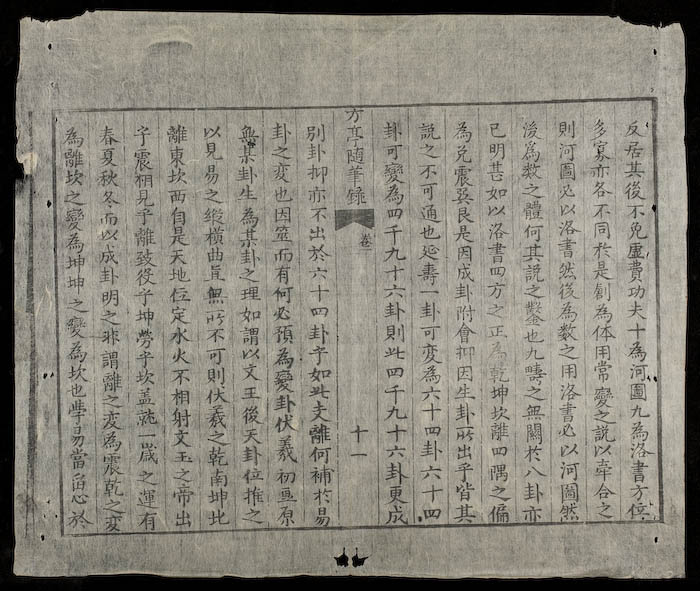 反居其後不免虛費功夫十為河圖九為洛書方位
多寡亦各不同於是創為体用常變之說以牵合之
則河圖必以洛書然後為數之用洛書必以河圖然
後為數之體何其說之鑿也九疇之無關於八卦亦
已明甚如以洛書四方之正為乾坤坎離四隅之偏
為兌震巽艮是因成卦附會抑因生卦所出乎皆其
說之不可通也延壽一卦可変為六十四卦六十四
卦可變為四千九十六卦則此四千九十六卦更成
方亭隨筆錄 卷一 十一
別卦抑亦不出於六十四卦乎如此支離何補於易
卦之変也因筮而有何必預為變卦伏羲初畫原
無某卦生為某卦之理如謂以文王後天卦位推之
以見易之縱橫曲直無所不可則伏羲之乾南坤北
離東坎西自是天地位定水火不相射文王之帝出
乎震相見乎離致役乎坤勞乎坎盖就一歲之運有
春夏秋冬而以成卦明之非謂離之变為震乾之变
為離坎之變為坤坤之變為坎也學易當留心於